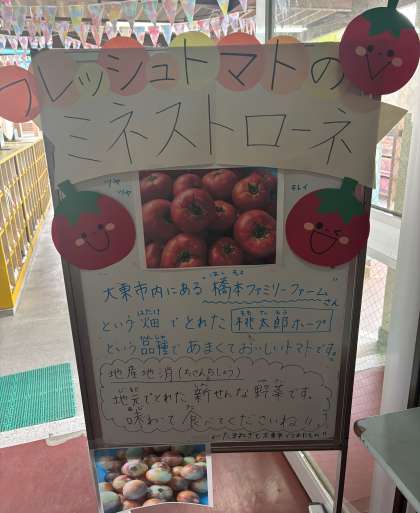 フレッシュトマトの
ミネストローネ
ツヤ
ツヤ
キレイ
大東市内にある"橋本ファミリーファーム"さん
という畑でとれた 桃太郎ホープ
という品種であまくておいしいトマトです。
地産地消(ちさんちしょう)
地元でとれた新せんな野菜です。
味わって食べてくださいね!!
たまねぎも大東市でとれたもの!!